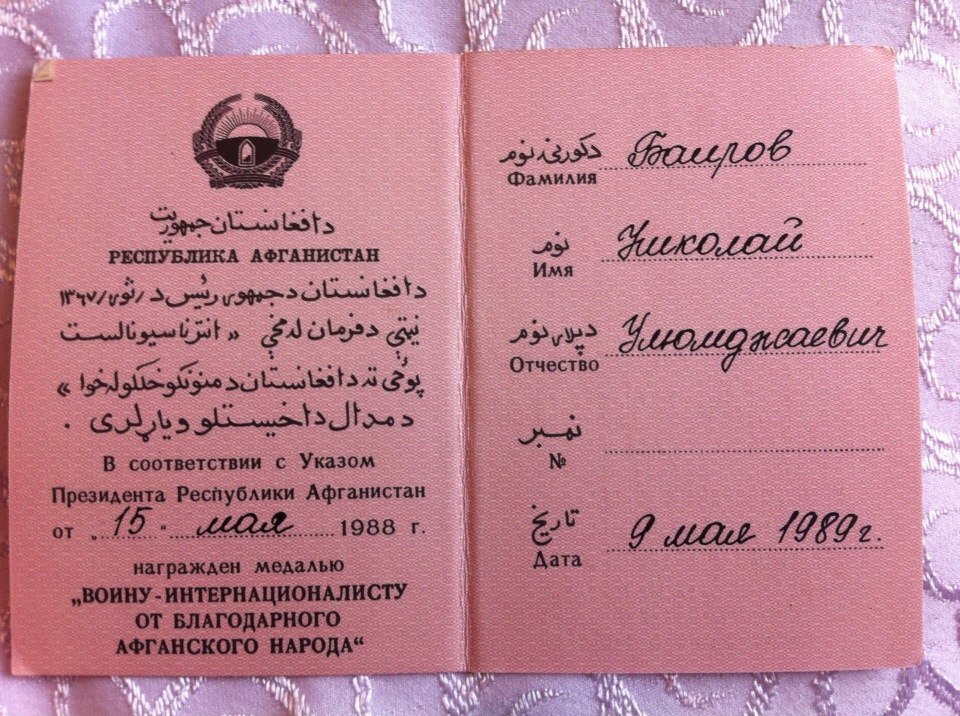 دافغانستان جمهوریت
РЕСПУБЛИКА АФГАНИСТАН
دافغانستان دجمهوری رئیس د / ثور / ۱۳۶۷
نیټې دفرمان له مخې « انترناسیونالست
پوځی ته دافغانستان دمنونکوخلکولخوا »
دمدال داخیستلو ویاړلری .
В соответствии с Указом
Президента Республики Афганистан
от „15 “ мая 1988 г.
награжден медалью
„ВОИНУ-ИНТЕРНАЦИОНАЛИСТУ
ОТ БЛАГОДАРНОГО
АФГАНСКОГО НАРОДА“
دکورنی نوم
Фамилия Баиров
نوم
Имя Николай
دپلار نوم
Отчество Улюмджаевич
نمبر
№
تاریخ
Дата 9 мая 1989г.